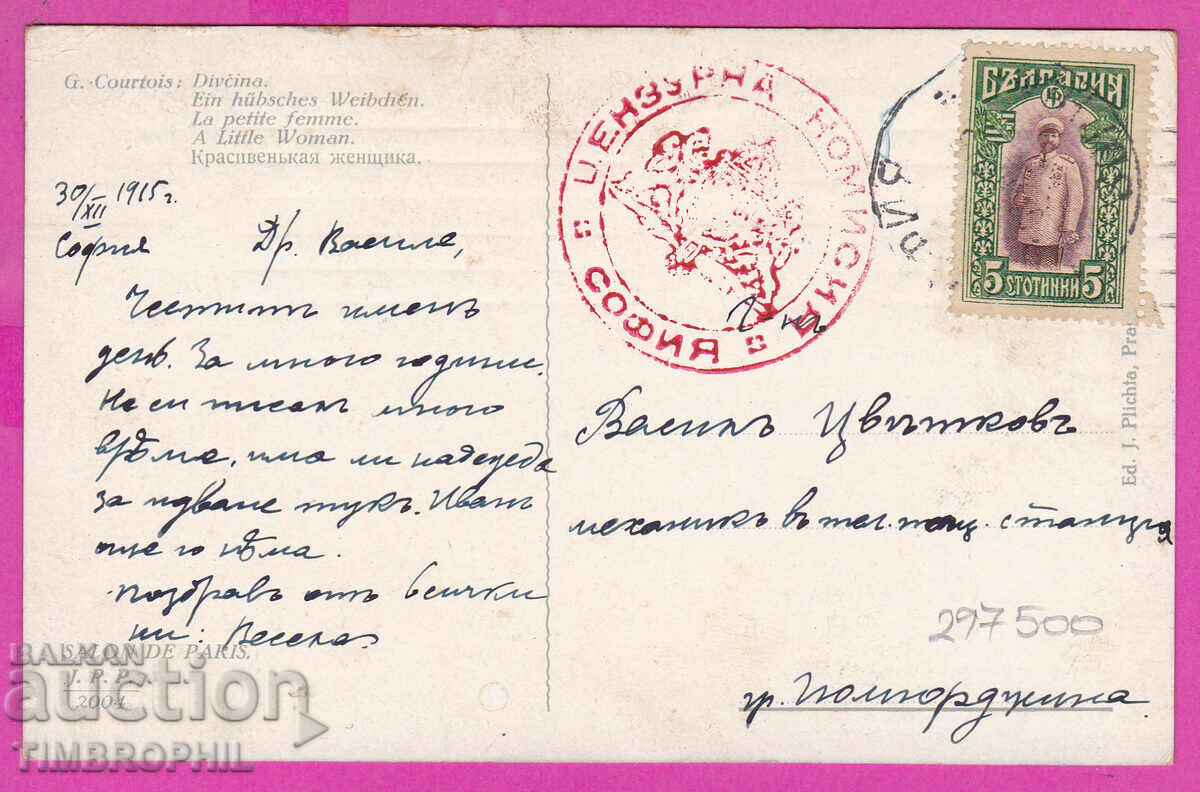 G. Courtois: Divčina.
Ein hübsches Weibchen.
La petite femme.
A Little Woman.
Красивенькая женщина.
30/XII 1915 г.
София
Др. Василе,
Честитъ именъ
день. За много години.
Не си писалъ много
врѣме, има ли надежда
за идване тукъ. Иванъ
още го нѣма.
поздравъ отъ всички
ни: Веска
SALON DE PARIS.
J. P. P.
2004
ЦЕНЗУРНА КОМИСИЯ
СОФИЯ
БЪЛГАРИЯ
5 СТОТИНКИ 5
Г-нъ
Василъ Цвѣтковъ
механикъ въ тел. пощ. станция
297500
гр. Гюмюрджина
Ed. J. Plichta, Pra
BALKAN
auction
TIMBROPHIL